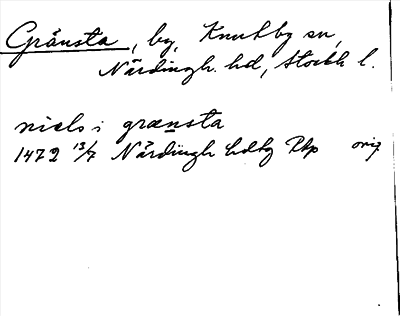 Gränsta, by, Knutby sn,
Närdingh. hd, Stockh l.
niels i grænsta
1472 13/7 Närdingh hdtg Rkp orig